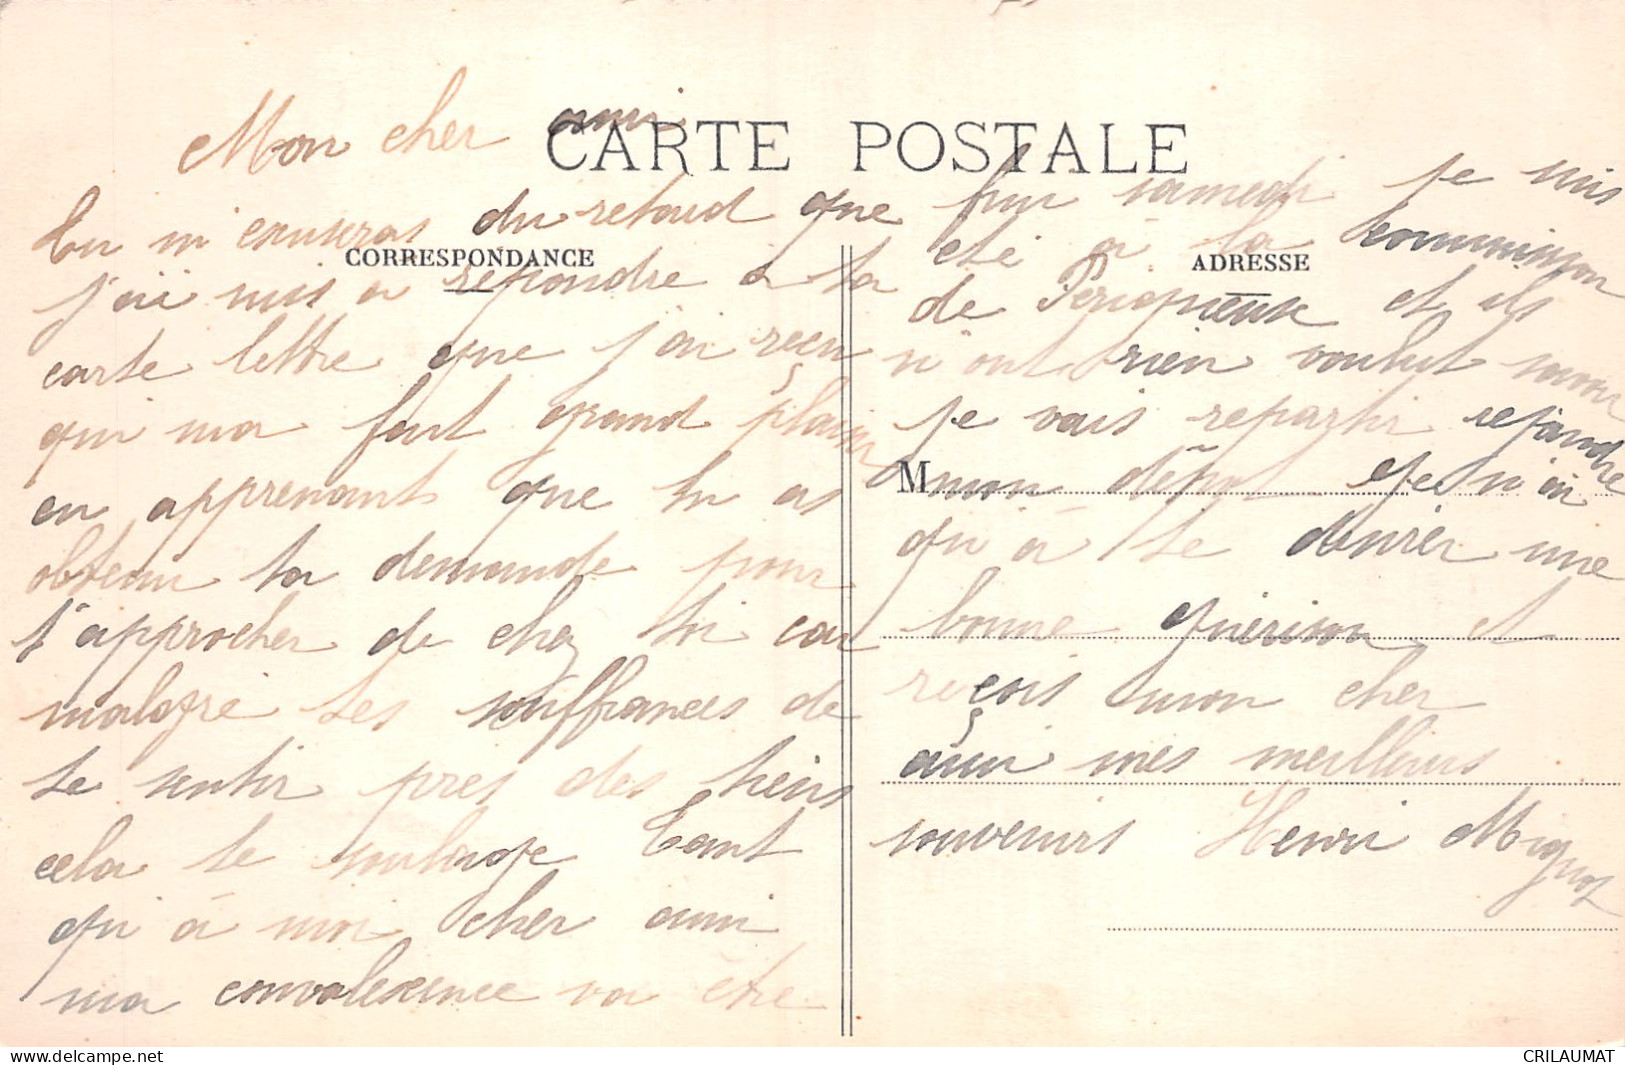 CARTE POSTALE
CORRESPONDANCE
ADRESSE
M
Mon cher ami
tu m'excuseras du retard que
j'ai mis a repondre a ta
carte lettre que j'ai reçu
qui ma fait grand plaisir
en apprenant que tu as
obtenu ta demande pour
t'approcher de chez toi car
malgre tes souffrances de
te sentir pres des tiens
cela te soulage tant
qu'à moi cher ami
ma convalescence va être
fini samedi je suis
eté à la commission
de Perigueux et ils
n'ont rien voulut
je vais repartir rejoindre
mon dépot et je n'ai
qu'à te desirer une
bonne guérison et
reçois mon cher
ami mes meilleurs
souvenirs Henri
delcampe.net
CRILAUMAT